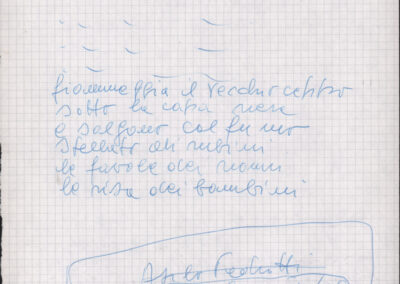 fiammeggia il vecchio ceppo
sotto la capa nera
e salgono col fumo
stellato di rubini
le favole dei nonni
le risa dei bambini